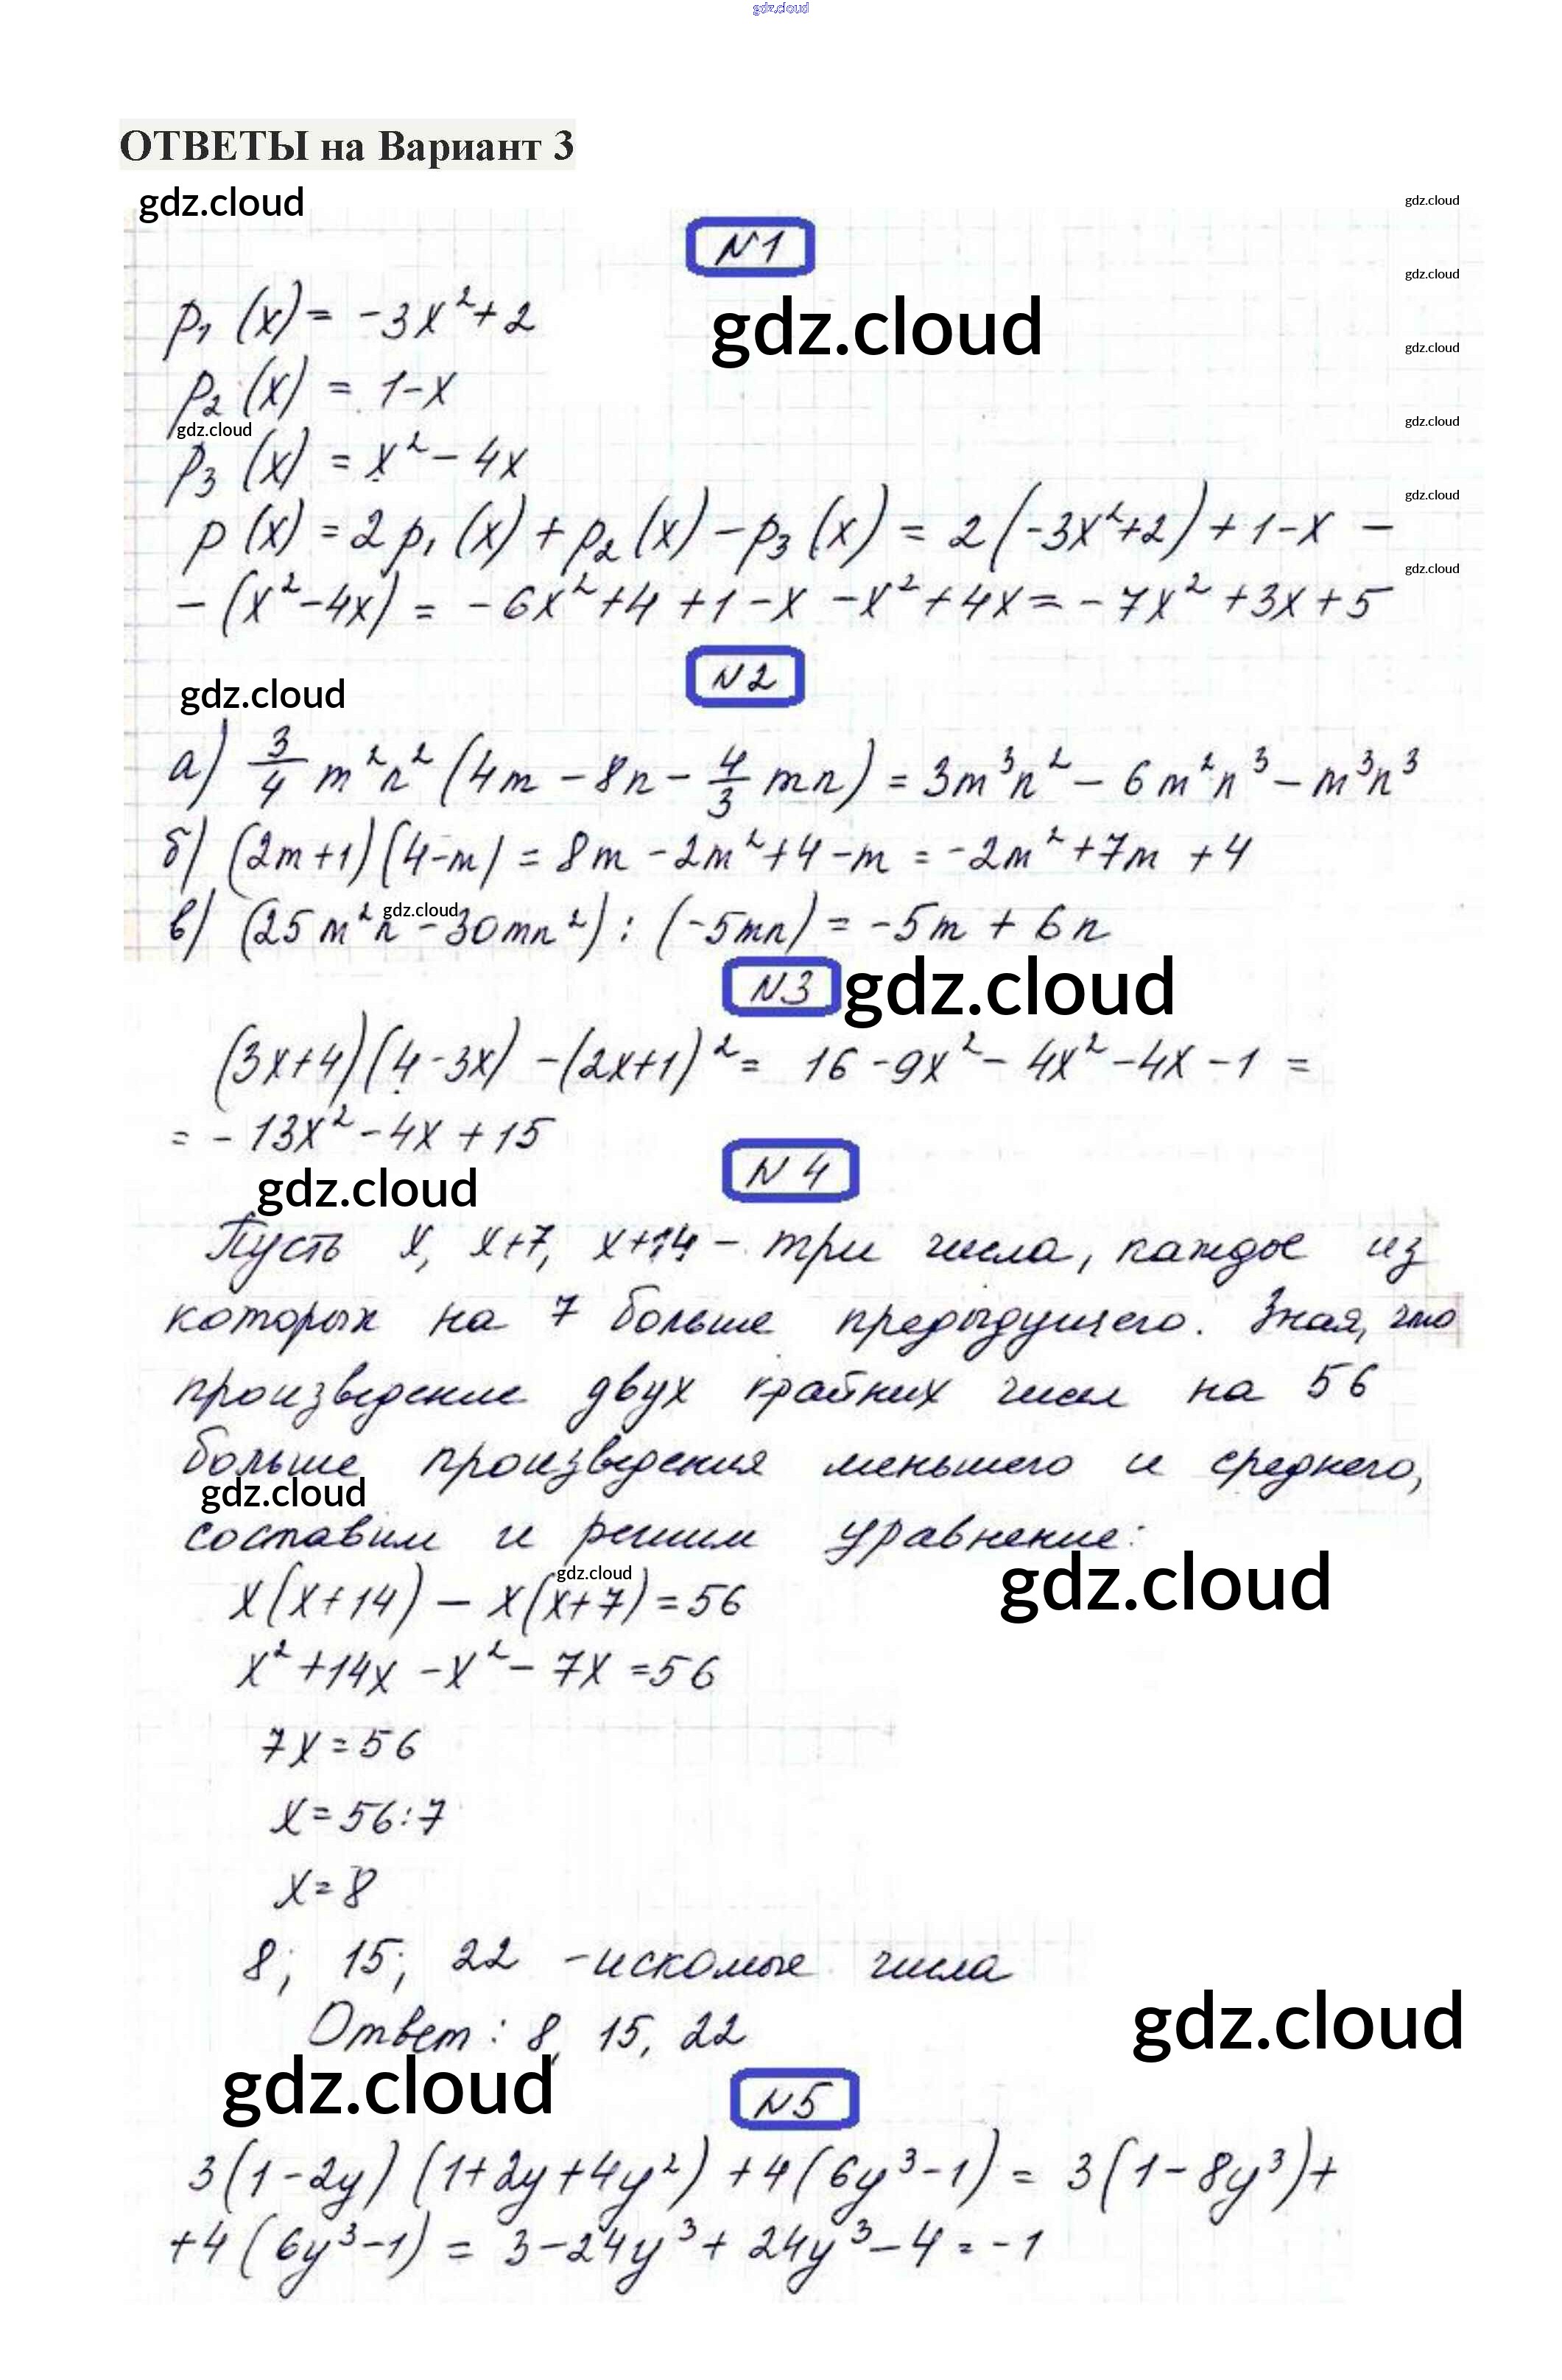 gdz.cloud
ОТВЕТЫ на Вариант 3
gdz.cloud
gdz.cloud
N1
gdz.cloud
p₁(x) = -3x²+2
gdz.cloud
gdz.cloud
p₂(x) = 1-x
gdz.cloud
gdz.cloud
p₃(x) = x²-4x
gdz.cloud
p(x) = 2p₁(x) + p₂(x) - p₃(x) = 2(-3x²+2) + 1-x -
gdz.cloud
- (x²-4x) = -6x²+4+1-x-x²+4x = -7x²+3x+5
N2
gdz.cloud
а) 3/4 m²n² (4m - 8n - 4/3 mn) = 3m³n² - 6m²n³ - m³n³
б) (2m+1)(4-m) = 8m - 2m²+4-m = -2m²+7m+4
в) (25m²n - 30mn²) : (-5mn) = -5m + 6n
gdz.cloud
N3
gdz.cloud
(3x+4)(4-3x) - (2x+1)² = 16-9x²-4x²-4x-1 =
= -13x²-4x+15
N4
gdz.cloud
Пусть x, x+7, x+14 - три числа, каждое из
которых на 7 больше предыдущего. Зная, что
произведение двух крайних чисел на 56
больше произведения меньшего и среднего,
gdz.cloud
составим и решим уравнение:
gdz.cloud
gdz.cloud
x(x+14) - x(x+7) = 56
x²+14x-x²-7x=56
7x=56
x=56:7
x=8
8; 15; 22 - искомые числа
gdz.cloud
Ответ: 8, 15, 22
gdz.cloud
N5
3(1-2y)(1+2y+4y²)+4(6y³-1) = 3(1-8y³)+
+4(6y³-1) = 3-24y³+24y³-4 = -1